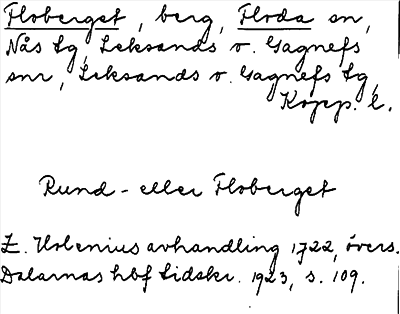 Floberget, berg, Floda sn,
Nås tg, Leksands o. Gagnefs
snr, Leksands o. Gagnefs tg,
Kopp. l.
Rund- eller Floberget
E. Holenius avhandling 1722, övers.
Dalarnas hbf tidskr. 1923, s. 109.